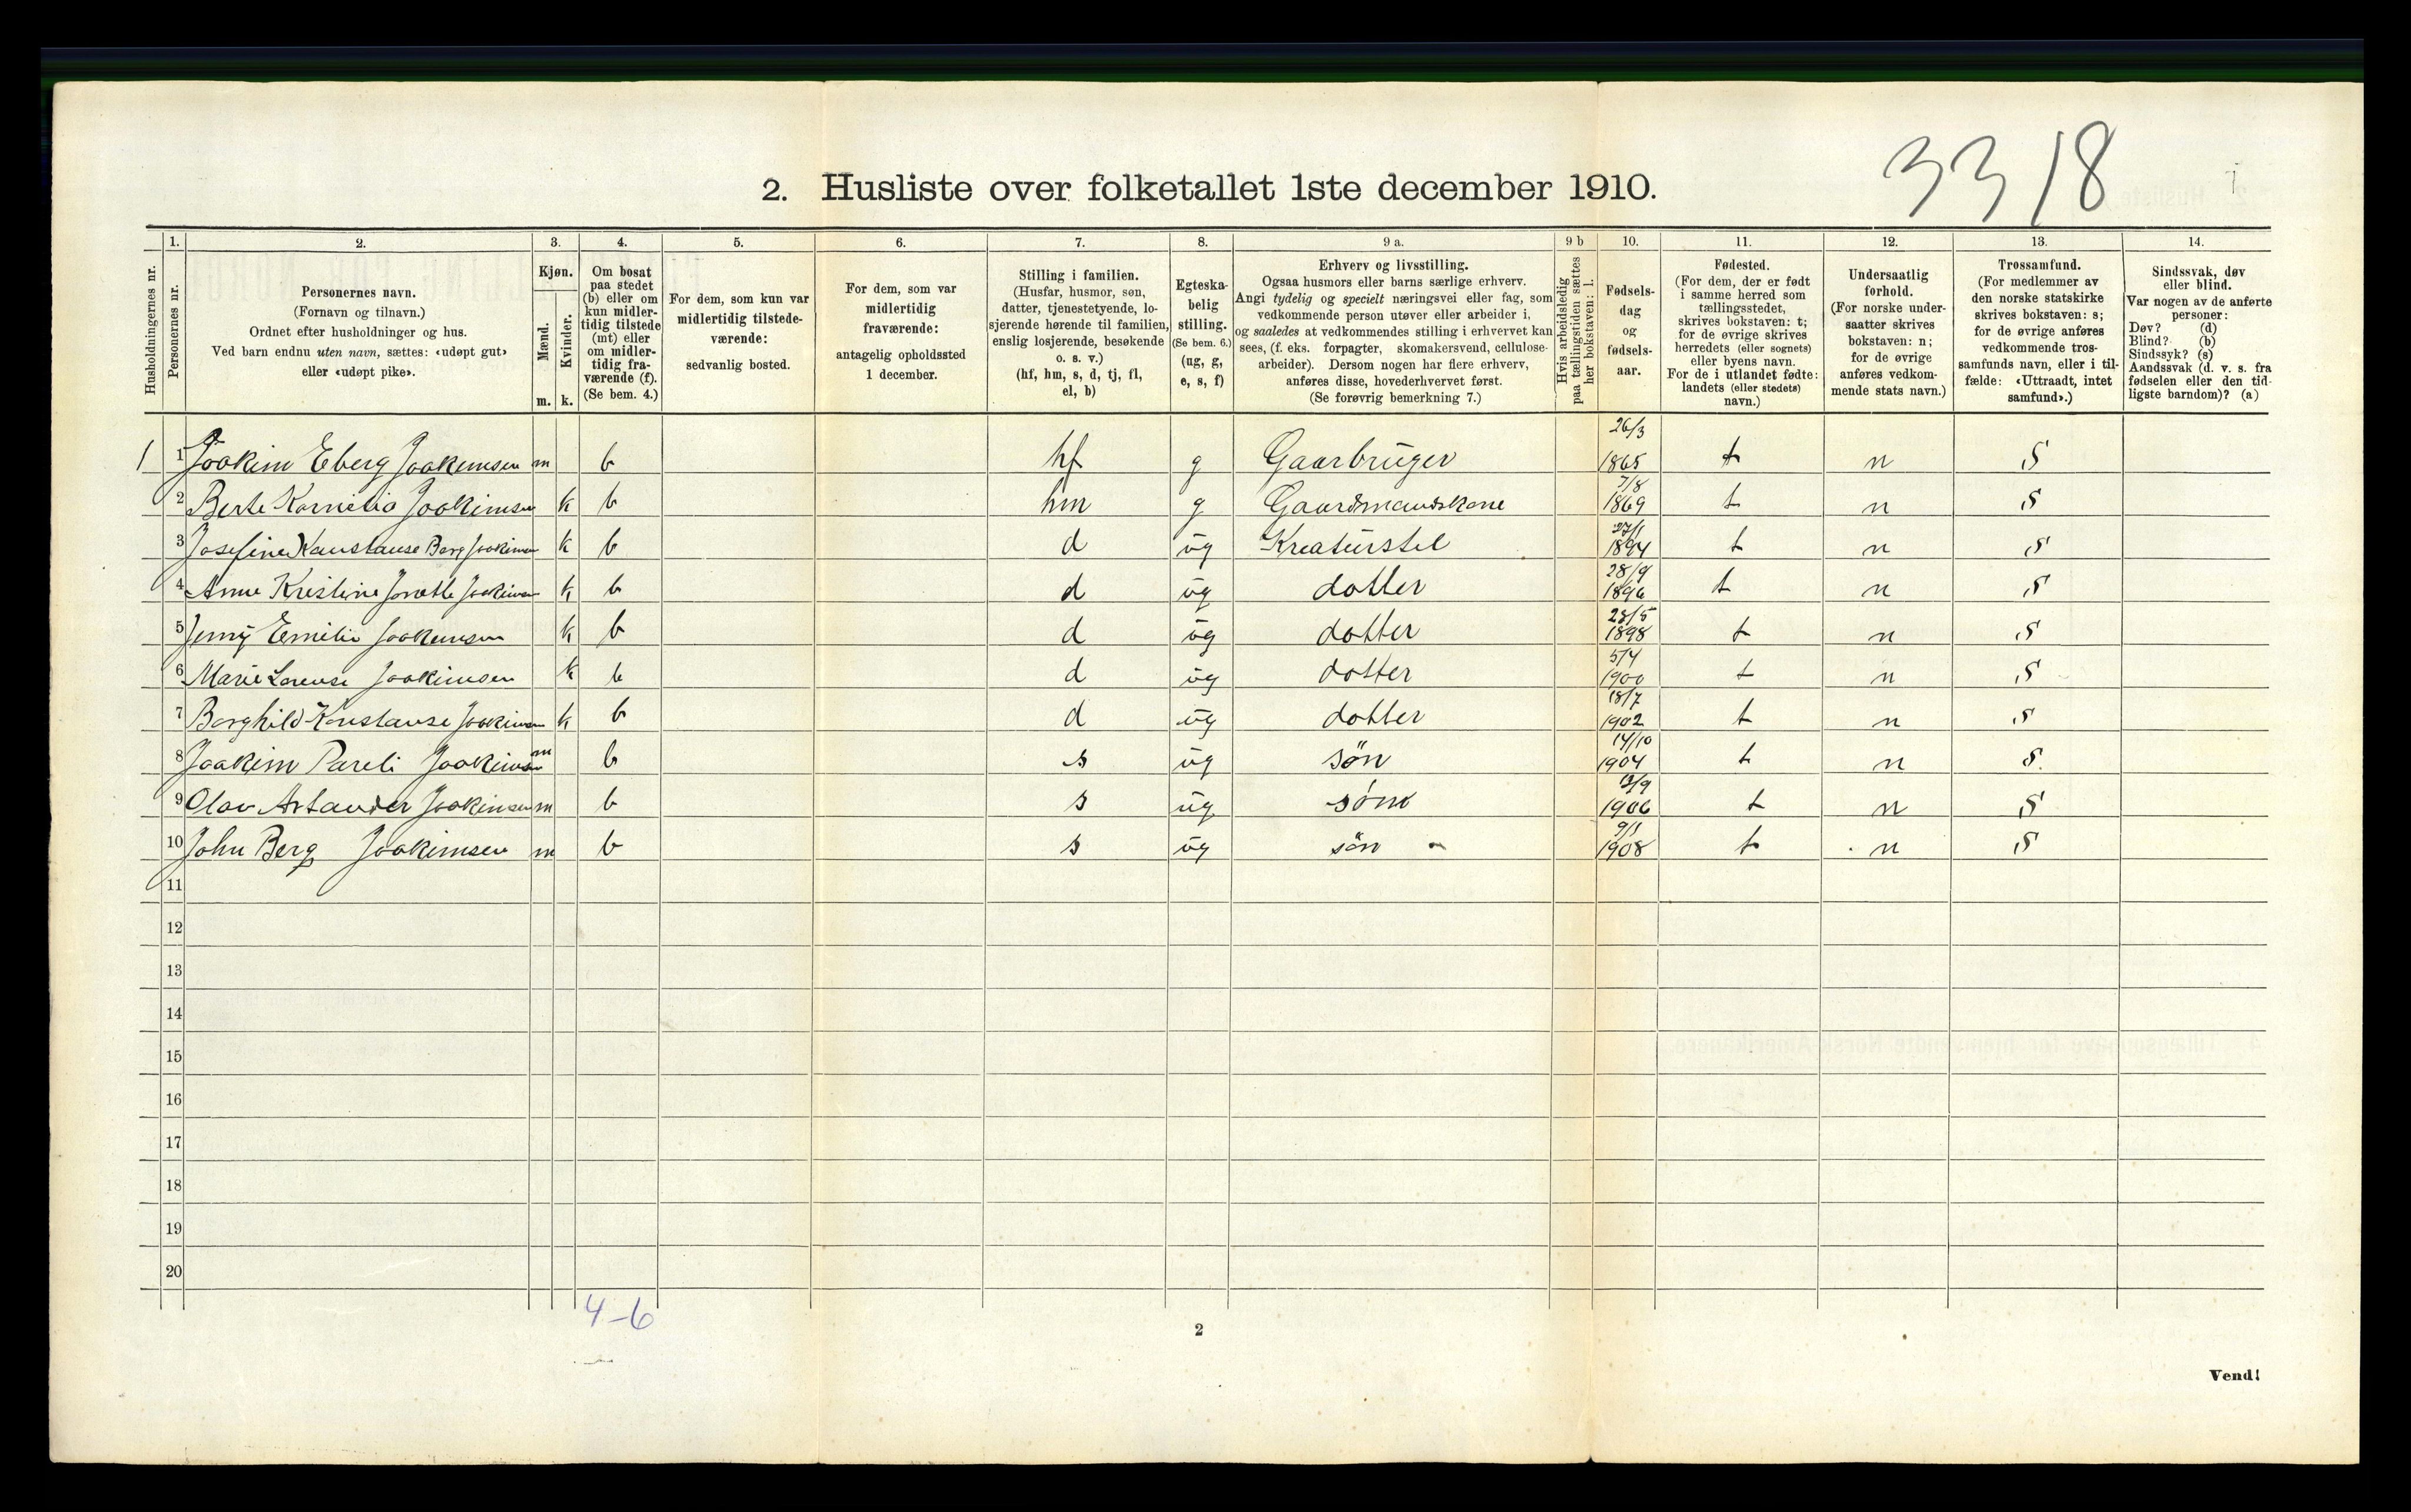 3318
2. Husliste over folketallet 1ste december 1910.
Husholdningernes nr.
1.
Personernes nr.
2.
Personernes navn.
(Fornavn og tilnavn.)
Ordnet efter husholdninger og hus.
Ved barn endnu uten navn, sættes: «udøpt gut»
eller «udøpt pike».
3.
Kjøn.
Mænd.
Kvinder.
m. k.
4.
Om bosat
paa stedet
(b) eller om
kun midler-
tidig tilstede
(mt) eller
om midler-
tidig fra-
værende (f).
(Se bem. 4.)
5.
For dem, som kun var
midlertidig tilstede-
værende:
sedvanlig bosted.
6.
For dem, som var
midlertidig
fraværende:
antagelig opholdssted
1 december.
7.
Stilling i familien.
(Husfar, husmor, søn,
datter, tjenestetyende, lo-
sjerende hørende til familien,
enslig losjerende, besøkende
o. s. v.)
(hf, hm, s, d, tj, fl,
el, b)
8.
Egteska-
belig
stilling.
(Se bem. 6.)
(ug, g,
e, s, f)
9 a.
Erhverv og livsstilling.
Ogsaa husmors eller barns særlige erhverv.
Angi tydelig og specielt næringsvei eller fag, som
vedkommende person utøver eller arbeider i,
og saaledes at vedkommendes stilling i erhvervet kan
sees, (f. eks. forpagter, skomakersvend, cellulose-
arbeider). Dersom nogen har flere erhverv,
anføres disse, hovederhvervet først.
(Se forøvrig bemerkning 7.)
9 b
Hvis arbeidsledig
paa tællingstiden sættes
her bokstaven: l.
10.
Fødsels-
dag
og
fødsels-
aar.
11.
Fødested.
(For dem, der er født
i samme herred som
tællingsstedet,
skrives bokstaven: t;
for de øvrige skrives
herredets (eller sognets)
eller byens navn.
For de i utlandet fødte:
landets (eller stedets)
navn.)
12.
Undersaatlig
forhold.
(For norske under-
saatter skrives
bokstaven: n;
for de øvrige
anføres vedkom-
mende stats navn.)
13.
Trossamfund.
(For medlemmer av
den norske statskirke
skrives bokstaven: s;
for de øvrige anføres
vedkommende tros-
samfunds navn, eller i til-
fælde: «Uttraadt, intet
samfund».)
14.
Sindssvak, døv
eller blind.
Var nogen av de anførte
personer:
Døv? (d)
Blind? (b)
Sindssyk? (s)
Aandssvak (d. v. s. fra
fødselen eller den tid-
ligste barndom)? (a)
1 1 Joakim Eberg Joakimsen m b hf g Gaarbruger 26/3 1865 t n S
2 Berte Kornelia Joakimsen k b hm g Gaardmandskone 7/8 1869 t n S
3 Josefine Konstanse Berg Joakimsen k b d ug Kreaturstel 27/1 1894 t n S
4 Anne Kristine Jonette Joakimsen k b d ug dotter 28/9 1896 t n S
5 Jenny Emilie Joakimsen k b d ug dotter 28/5 1898 t n S
6 Marie Lorense Joakimsen k b d ug dotter 5/4 1900 t n S
7 Borghild Konstanse Joakimsen k b d ug dotter 18/7 1902 t n S
8 Joakim Pareli Joakimsen m b s ug søn 14/10 1904 t n S
9 Olav Joakimsen m b s ug søn 1906 t n S
10 John Berg Joakimsen m b s ug søn 9/1 1908 t n S
11
12
13
14
15
16
17
18
19
20
4-6
2
Vend!